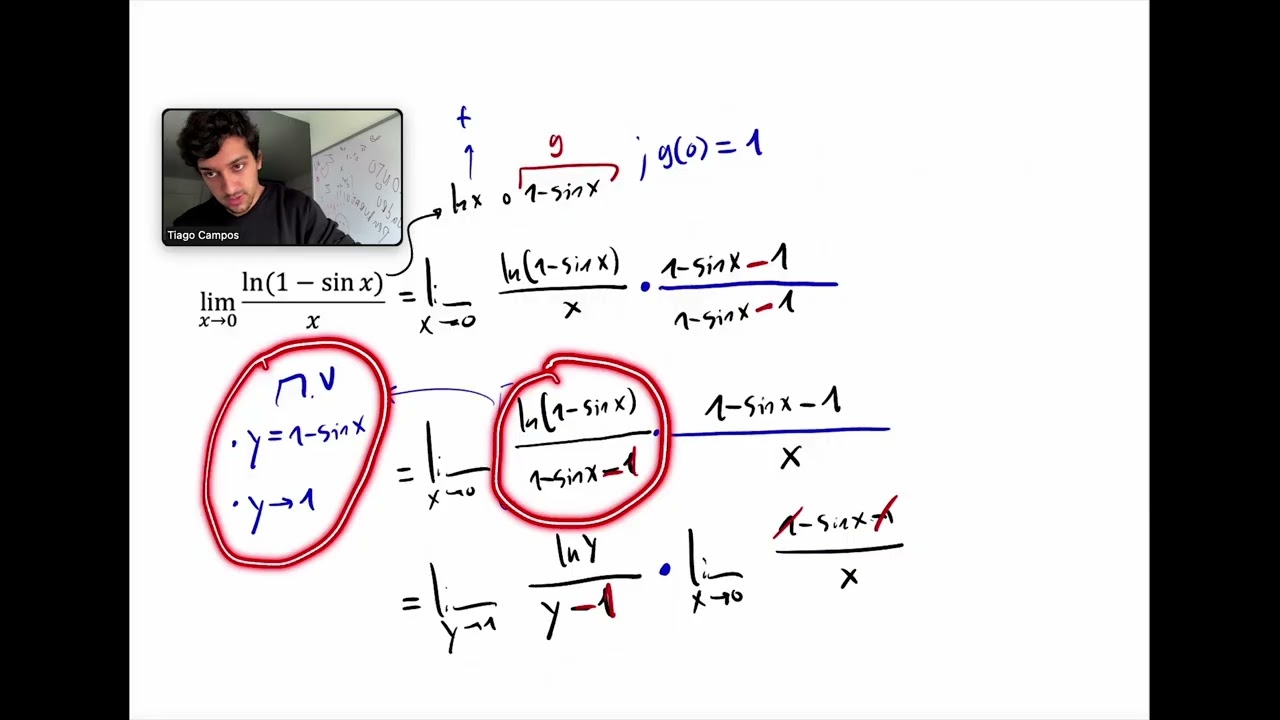 f
g
; g(0) = 1
ln x ∘ 1-sin x
Tiago Campos
lim x→0 ln(1 − sin x) / x = lim x→0 ln(1-sin x) / x • 1-sin x - 1 / 1-sin x - 1
M.V
• y = 1-sin x
• y → 1
= lim x→0 ln(1-sin x) / 1-sin x - 1 • 1-sin x - 1 / x
= lim y→1 ln y / y - 1 • lim x→0 1-sin x - 1 / x